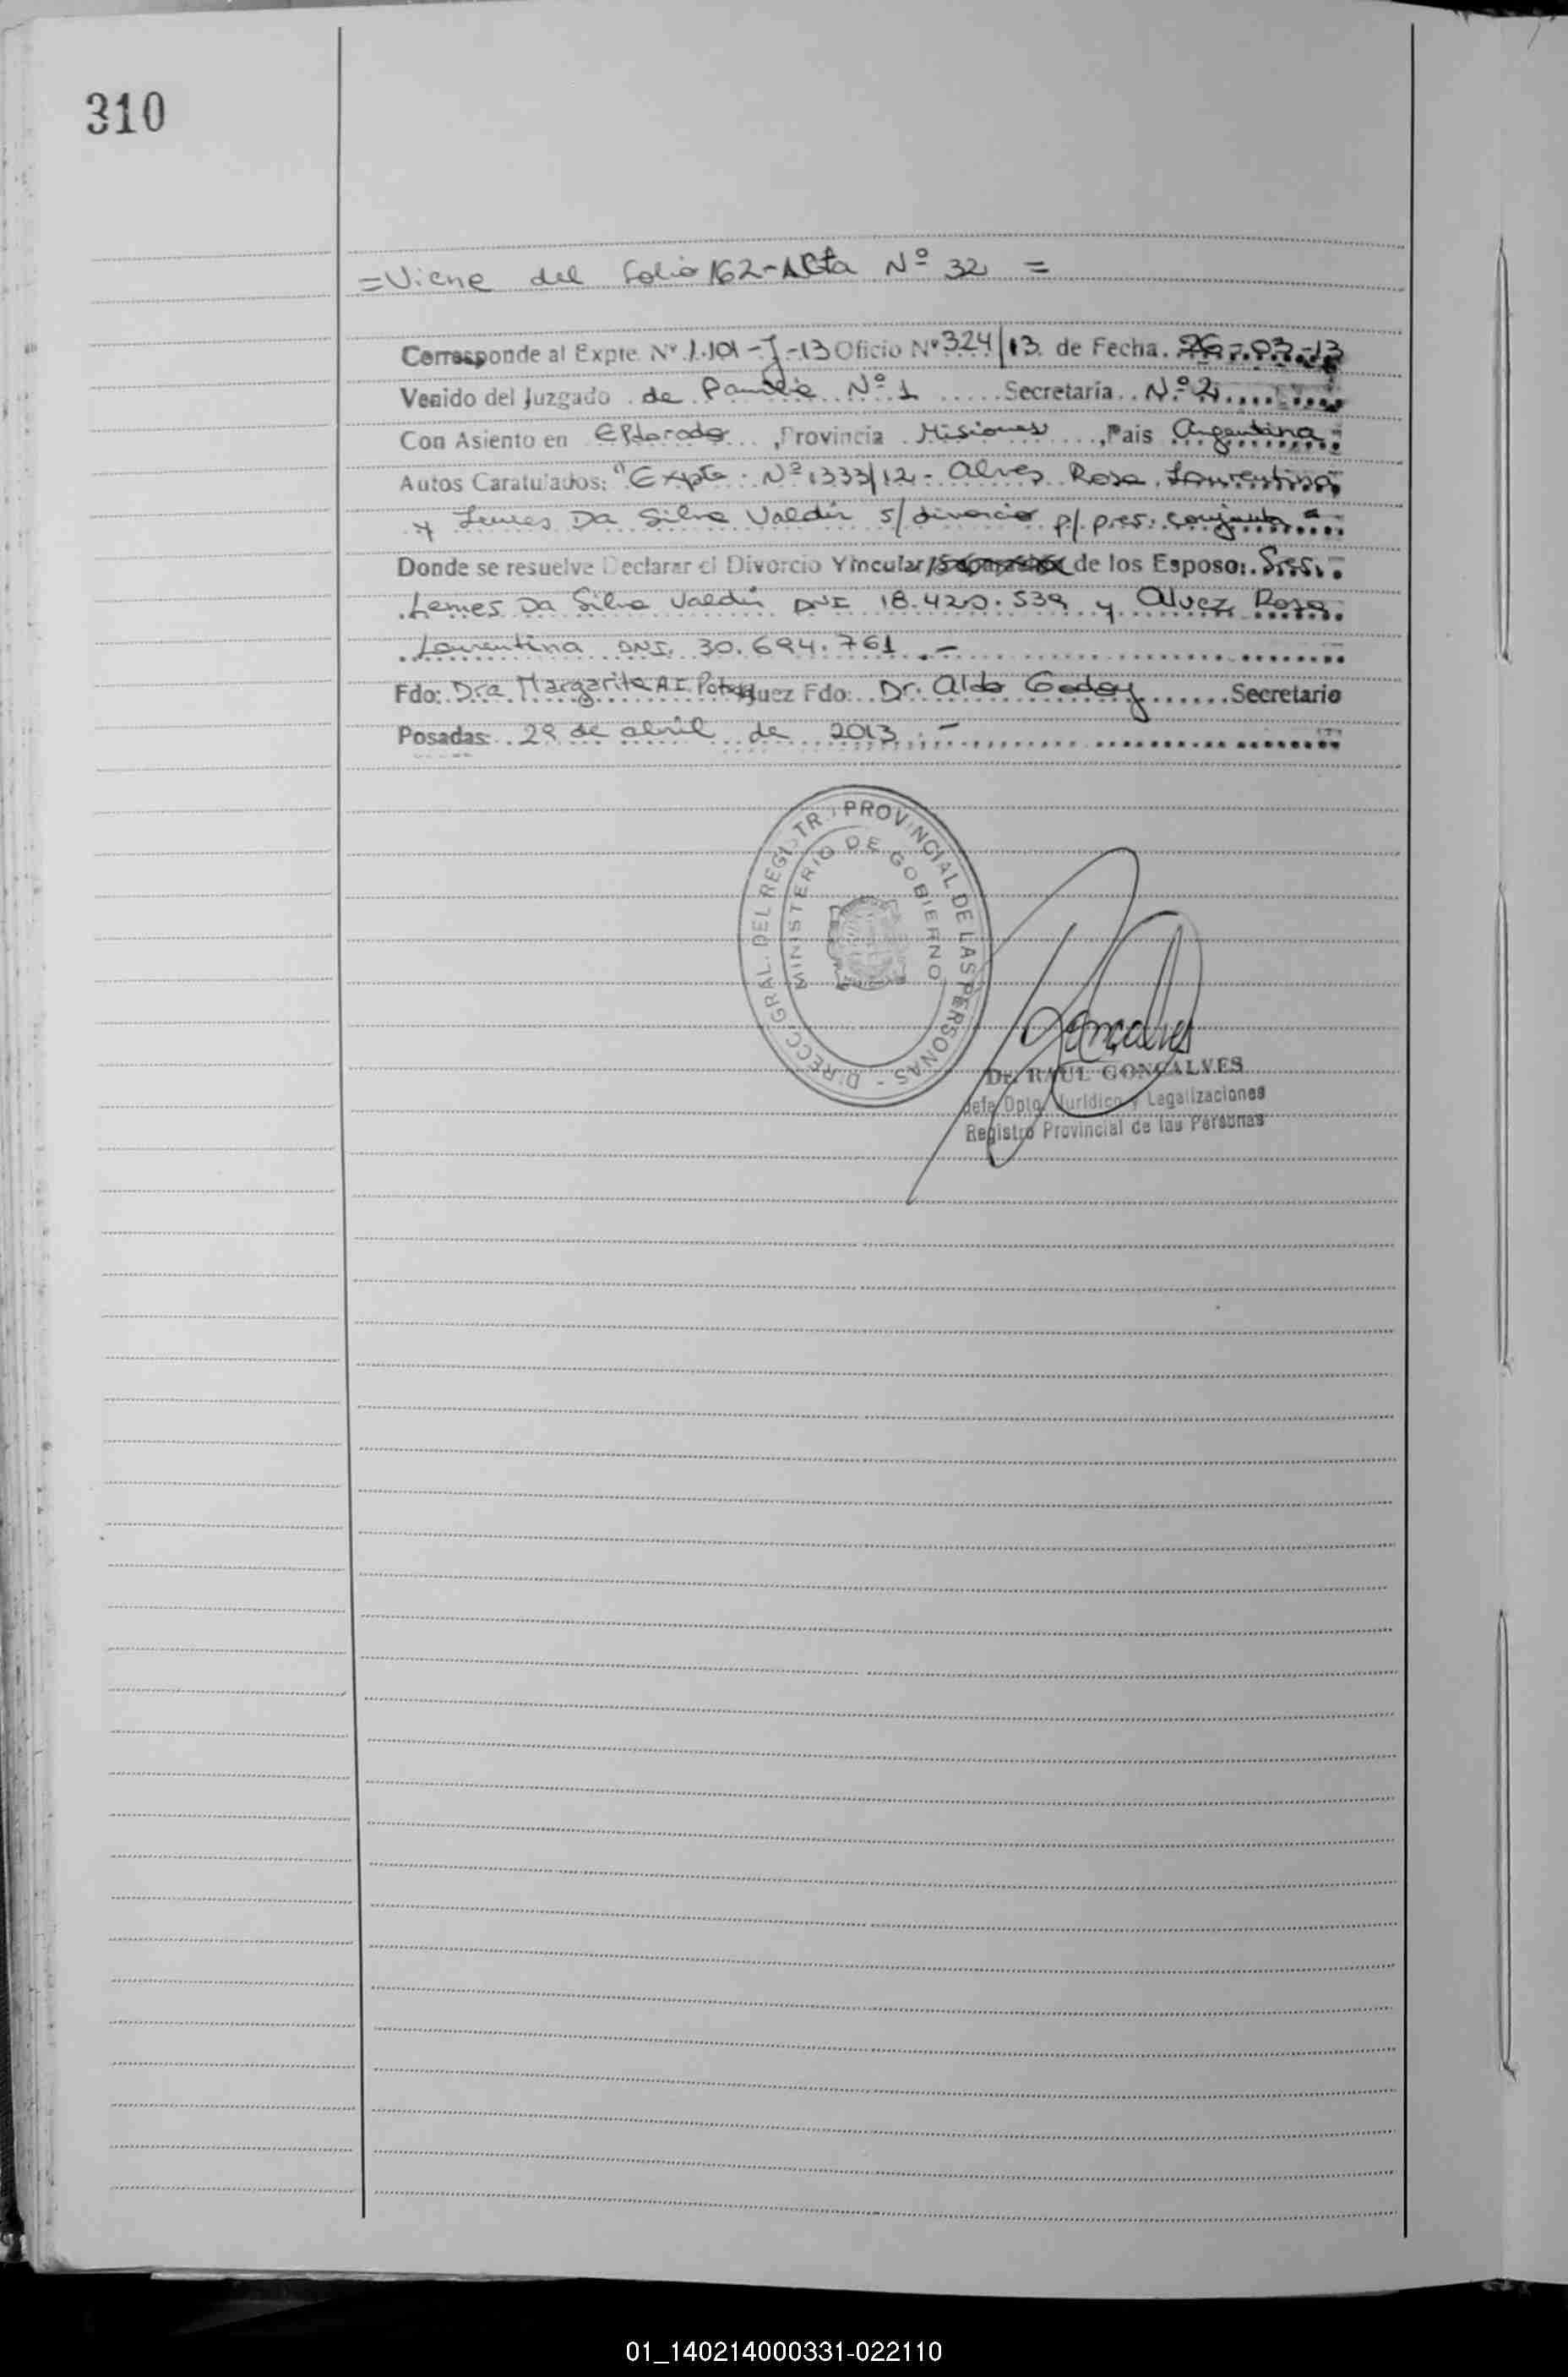 310
=Viene del folio 162-Acta Nº 32 =
Corresponde al Expte. Nº 1.101-J-13 Oficio Nº 324/13 de Fecha. 26-03-13
Venido del Juzgado de Familia Nº 1 ..... Secretaría.. Nº 2.....
Con Asiento en Eldorado..., Provincia. Misiones ..., Pais Argentina.
Autos Caratulados: "Expte. Nº 1333/12- Alves Rosa Laurentina
y Lemes Da Silva Valdir s/divorcio p/. pres. conjunta"....
Donde se resuelve Declarar el Divorcio Vincular/ de los Esposo:. Sres..
Lemes Da Silva Valdir DNI 18.420.539 y Alvez, Rosa.
Laurentina DNI. 30.694.761 .-
Fdo: Dra. Margarita A.I. Juez Fdo:.. Dr. Aldo Godoy ...... Secretario
Posadas:.. 29 de abril de 2013.-
DIRECC. GRAL. DEL REGISTRO PROVINCIAL DE LAS PERSONAS -
MINISTERIO DE GOBIERNO
Goncalves
Dr. RAUL GONCALVES
Jefe Dpto. Jurídico y Legalizaciones
Registro Provincial de las Personas
01_140214000331-022110